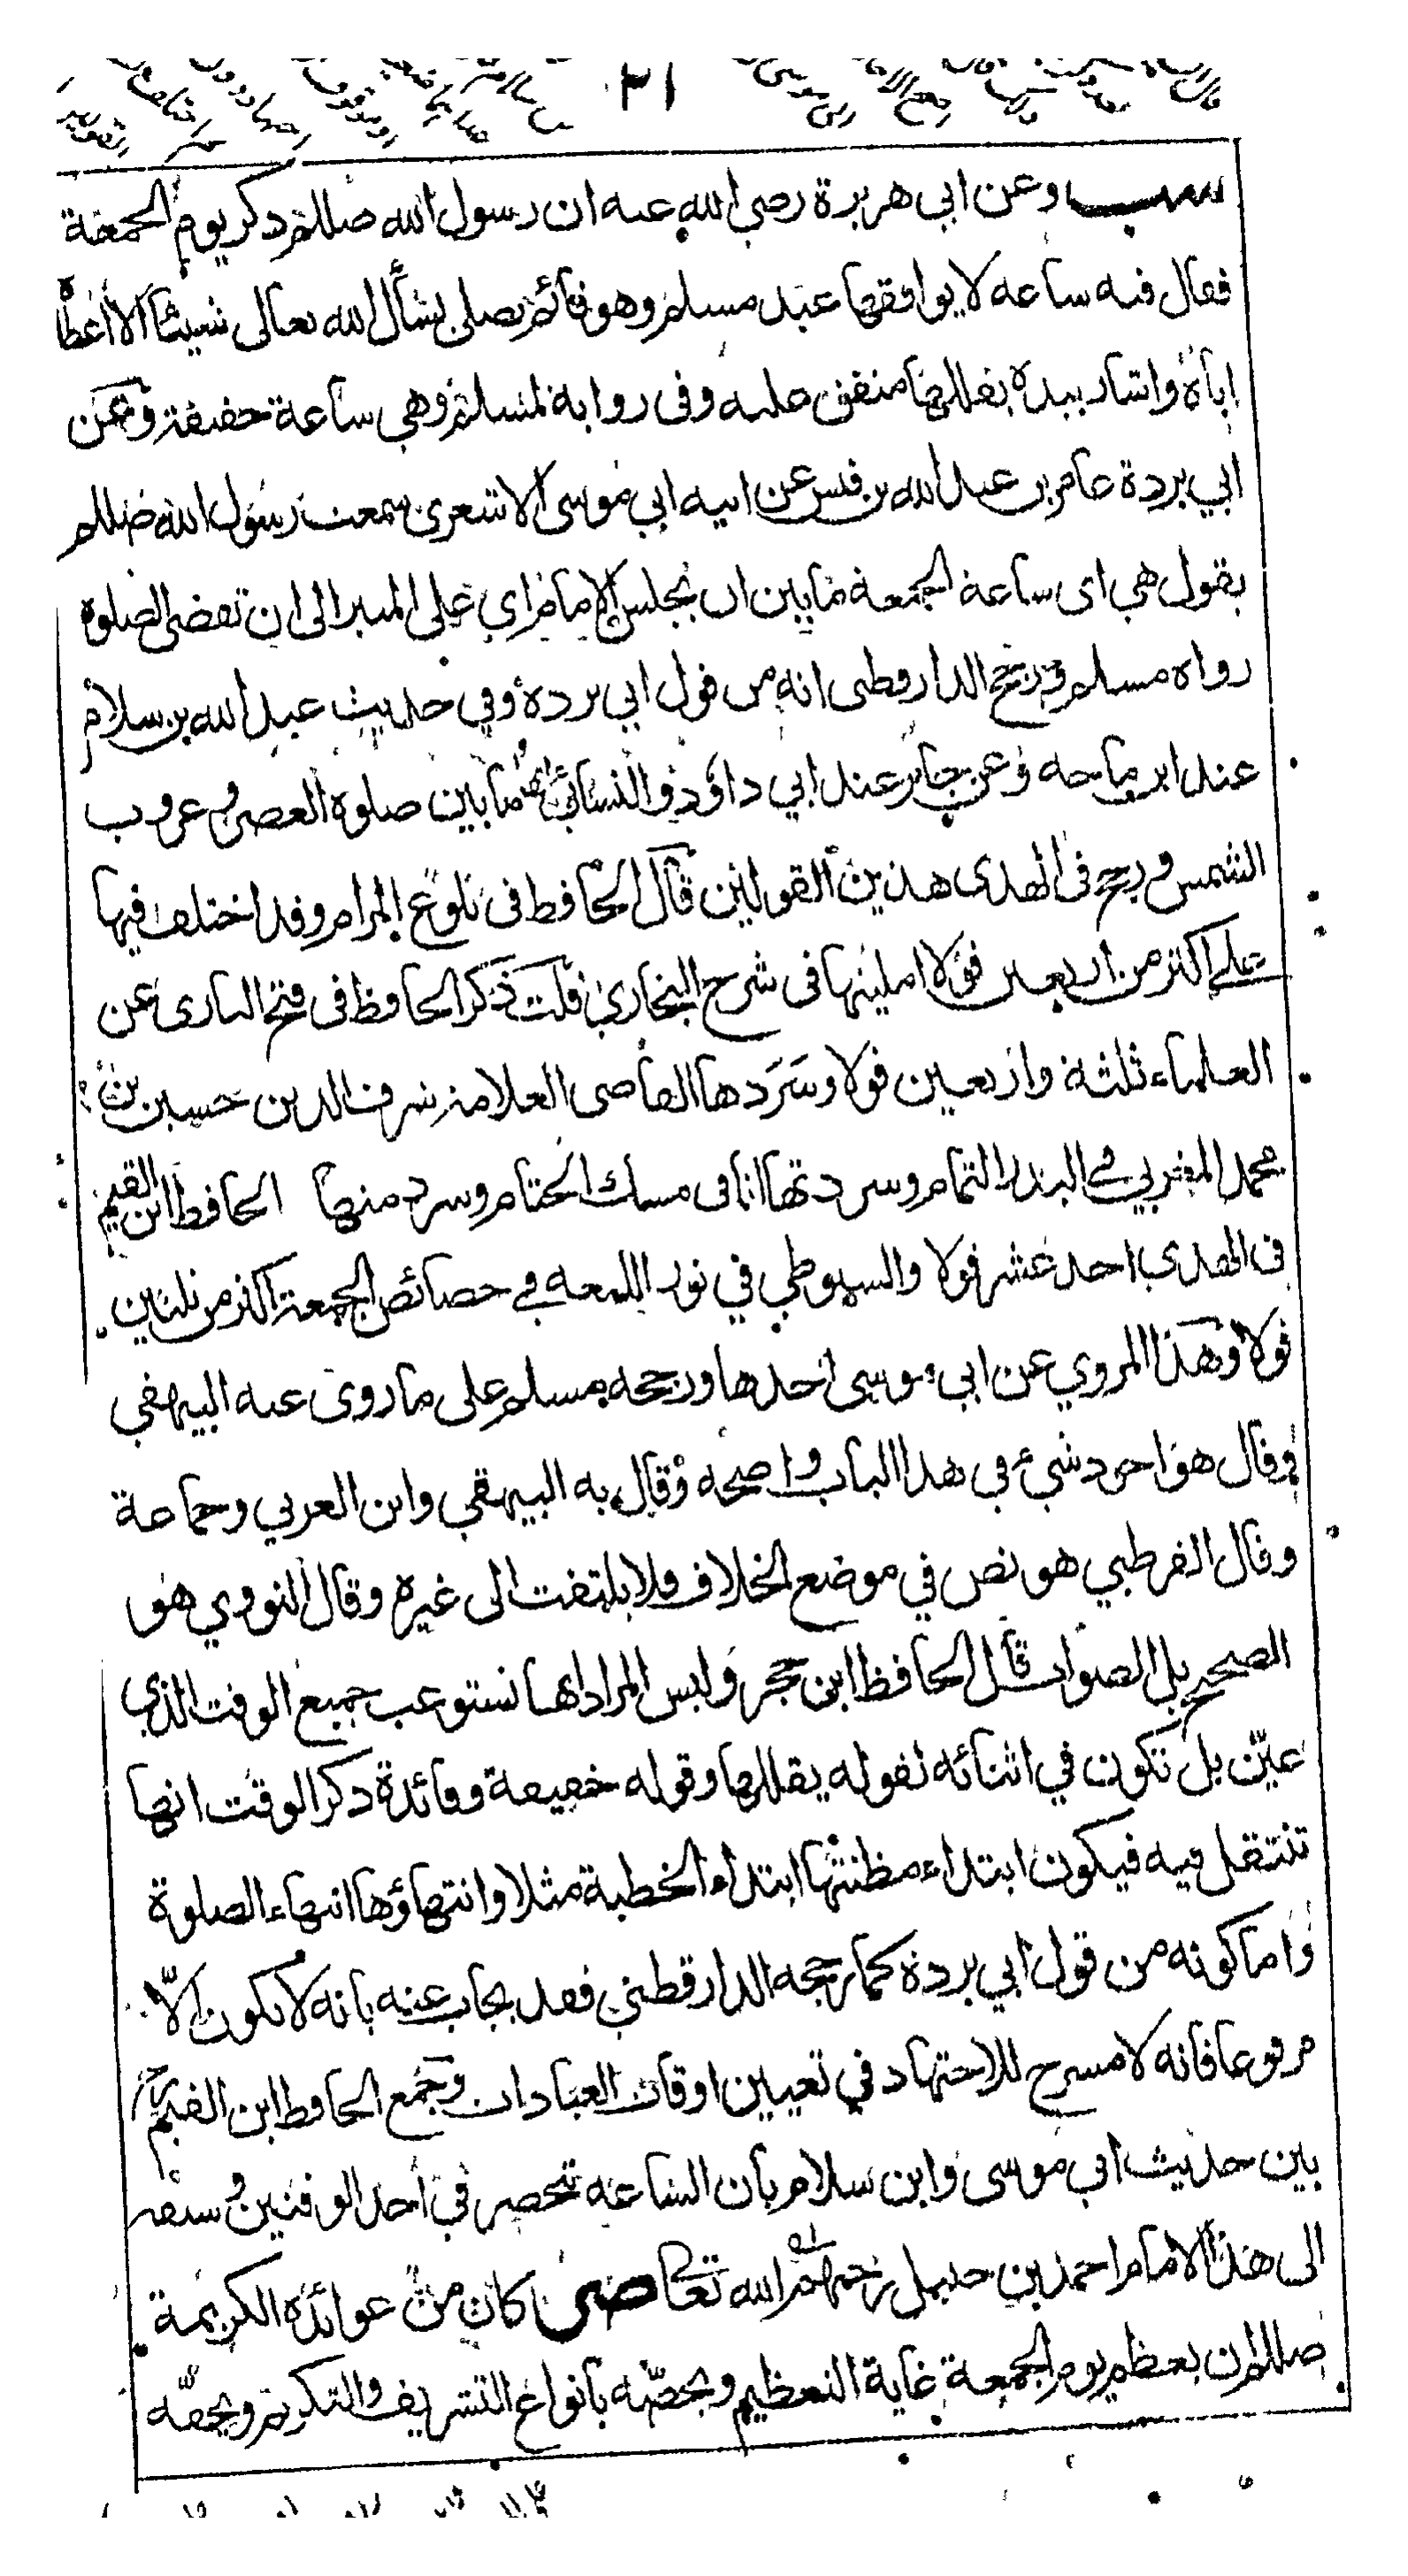 ٣١
وعن ابي هريرة رضي الله عنه ان رسول الله صللم ذكر يوم الجمعة
فقال فيه ساعه لا يوافقها عبد مسلم وهو قائم يصلي يسأل الله تعالى شيئا الا اعطاه
اياه واشار بيده يقللها متفق عليه وفي رواية لمسلم وهي ساعة خفيفة وعن
ابي بردة عامر بن عبد الله بن قيس عن ابيه ابي موسى الاشعري سمعت رسول الله صللم
يقول هي اي ساعة الجمعة ما بين ان يجلس الامام اي على المنبر الى ان تقضى الصلوة
رواه مسلم ورجح الدارقطني انه من قول ابي بردة وفي حديث عبد الله بن سلام
عند ابن ماجه وعن جابر عند ابي داود والنسائي انها ما بين صلوة العصر وغروب
الشمس ورجح في الهدى هذين القولين قال الحافظ في بلوغ المرام وقد اختلف فيها
على اكثر من اربعين قولا امليتها في شرح البخاري قلت ذكر الحافظ في فتح الباري عن
العلماء ثلثة واربعين قولا وسَرَدها القاضي العلامة شرف الدين حسين بن
محمد المغربي في البدر التمام وسردتها انا في مسك الختام وسرد منها الحافظ ابن القيم
في الهدى احد عشر قولا والسيوطي في نور اللمعه في خصائص الجمعة اكثر من ثلثين
قولا وهذا المروي عن ابي موسى احدها ورجحه مسلم على ما روى عنه البيهقي
وقال هو اجود شيء في هذا الباب واصحه وقال به البيهقي وابن العربي وجماعة
وقال القرطبي هو نص في موضع الخلاف فلا يلتفت الى غيره وقال النووي هو
الصحيح بل الصواب قال الحافظ ابن حجر وليس المراد انها تستوعب جميع الوقت الذي
عيّن بل تكون في اثنائه لقوله يقللها وقوله خفيفة وفائدة ذكر الوقت انها
تنتقل فيه فيكون ابتداء مظنتها ابتداء الخطبة مثلا وانتهاؤها انتهاء الصلوة
واما كونه من قول ابي بردة كما رجحه الدارقطني فقد يجاب عنه بانه لا يكون الّا
مرفوعا فانه لا مسرح للاجتهاد في تعيين اوقات العبادات وجمع الحافظ ابن القيم
بين حديث ابي موسى وابن سلام بان الساعه تنحصر في احد الوقتين وسبقه
الى هذا الامام احمد بن حنبل رحمهم الله تعالى كان من عوائده الكريمة
صللم ان يعظم يوم الجمعة غاية التعظيم ويخصّه بانواع التشريف والتكريم ويخصّه